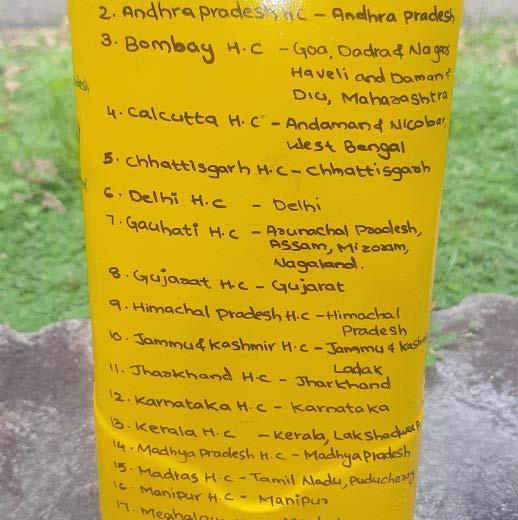 2. Andhra pradesh H.C - Andhra pradesh
3. Bombay H.C - Goa, Dadra & Nagar
Haveli and Daman &
Diu, Maharashtra
4. Calcutta H.C - Andaman & Nicobar,
West Bengal
5. Chhattisgarh H.C - Chhattisgarh
6. Delhi H.C - Delhi
7. Gauhati H.C - Arunachal Pradesh,
Assam, Mizoram,
Nagaland.
8. Gujarat H.C - Gujarat
9. Himachal pradesh H.C - Himachal
Pradesh
10. Jammu & Kashmir H.C - Jammu & Kash
Ladak
11. Jharkhand H.C - Jharkhand
12. Karnataka H.C - Karnataka
13. Kerala H.C - Kerala, Lakshadweep
14. Madhya pradesh H.C - Madhya Pradesh
15. Madras H.C - Tamil Nadu, Puducherry
16. Manipur H.C - Manipur
17. Meghala